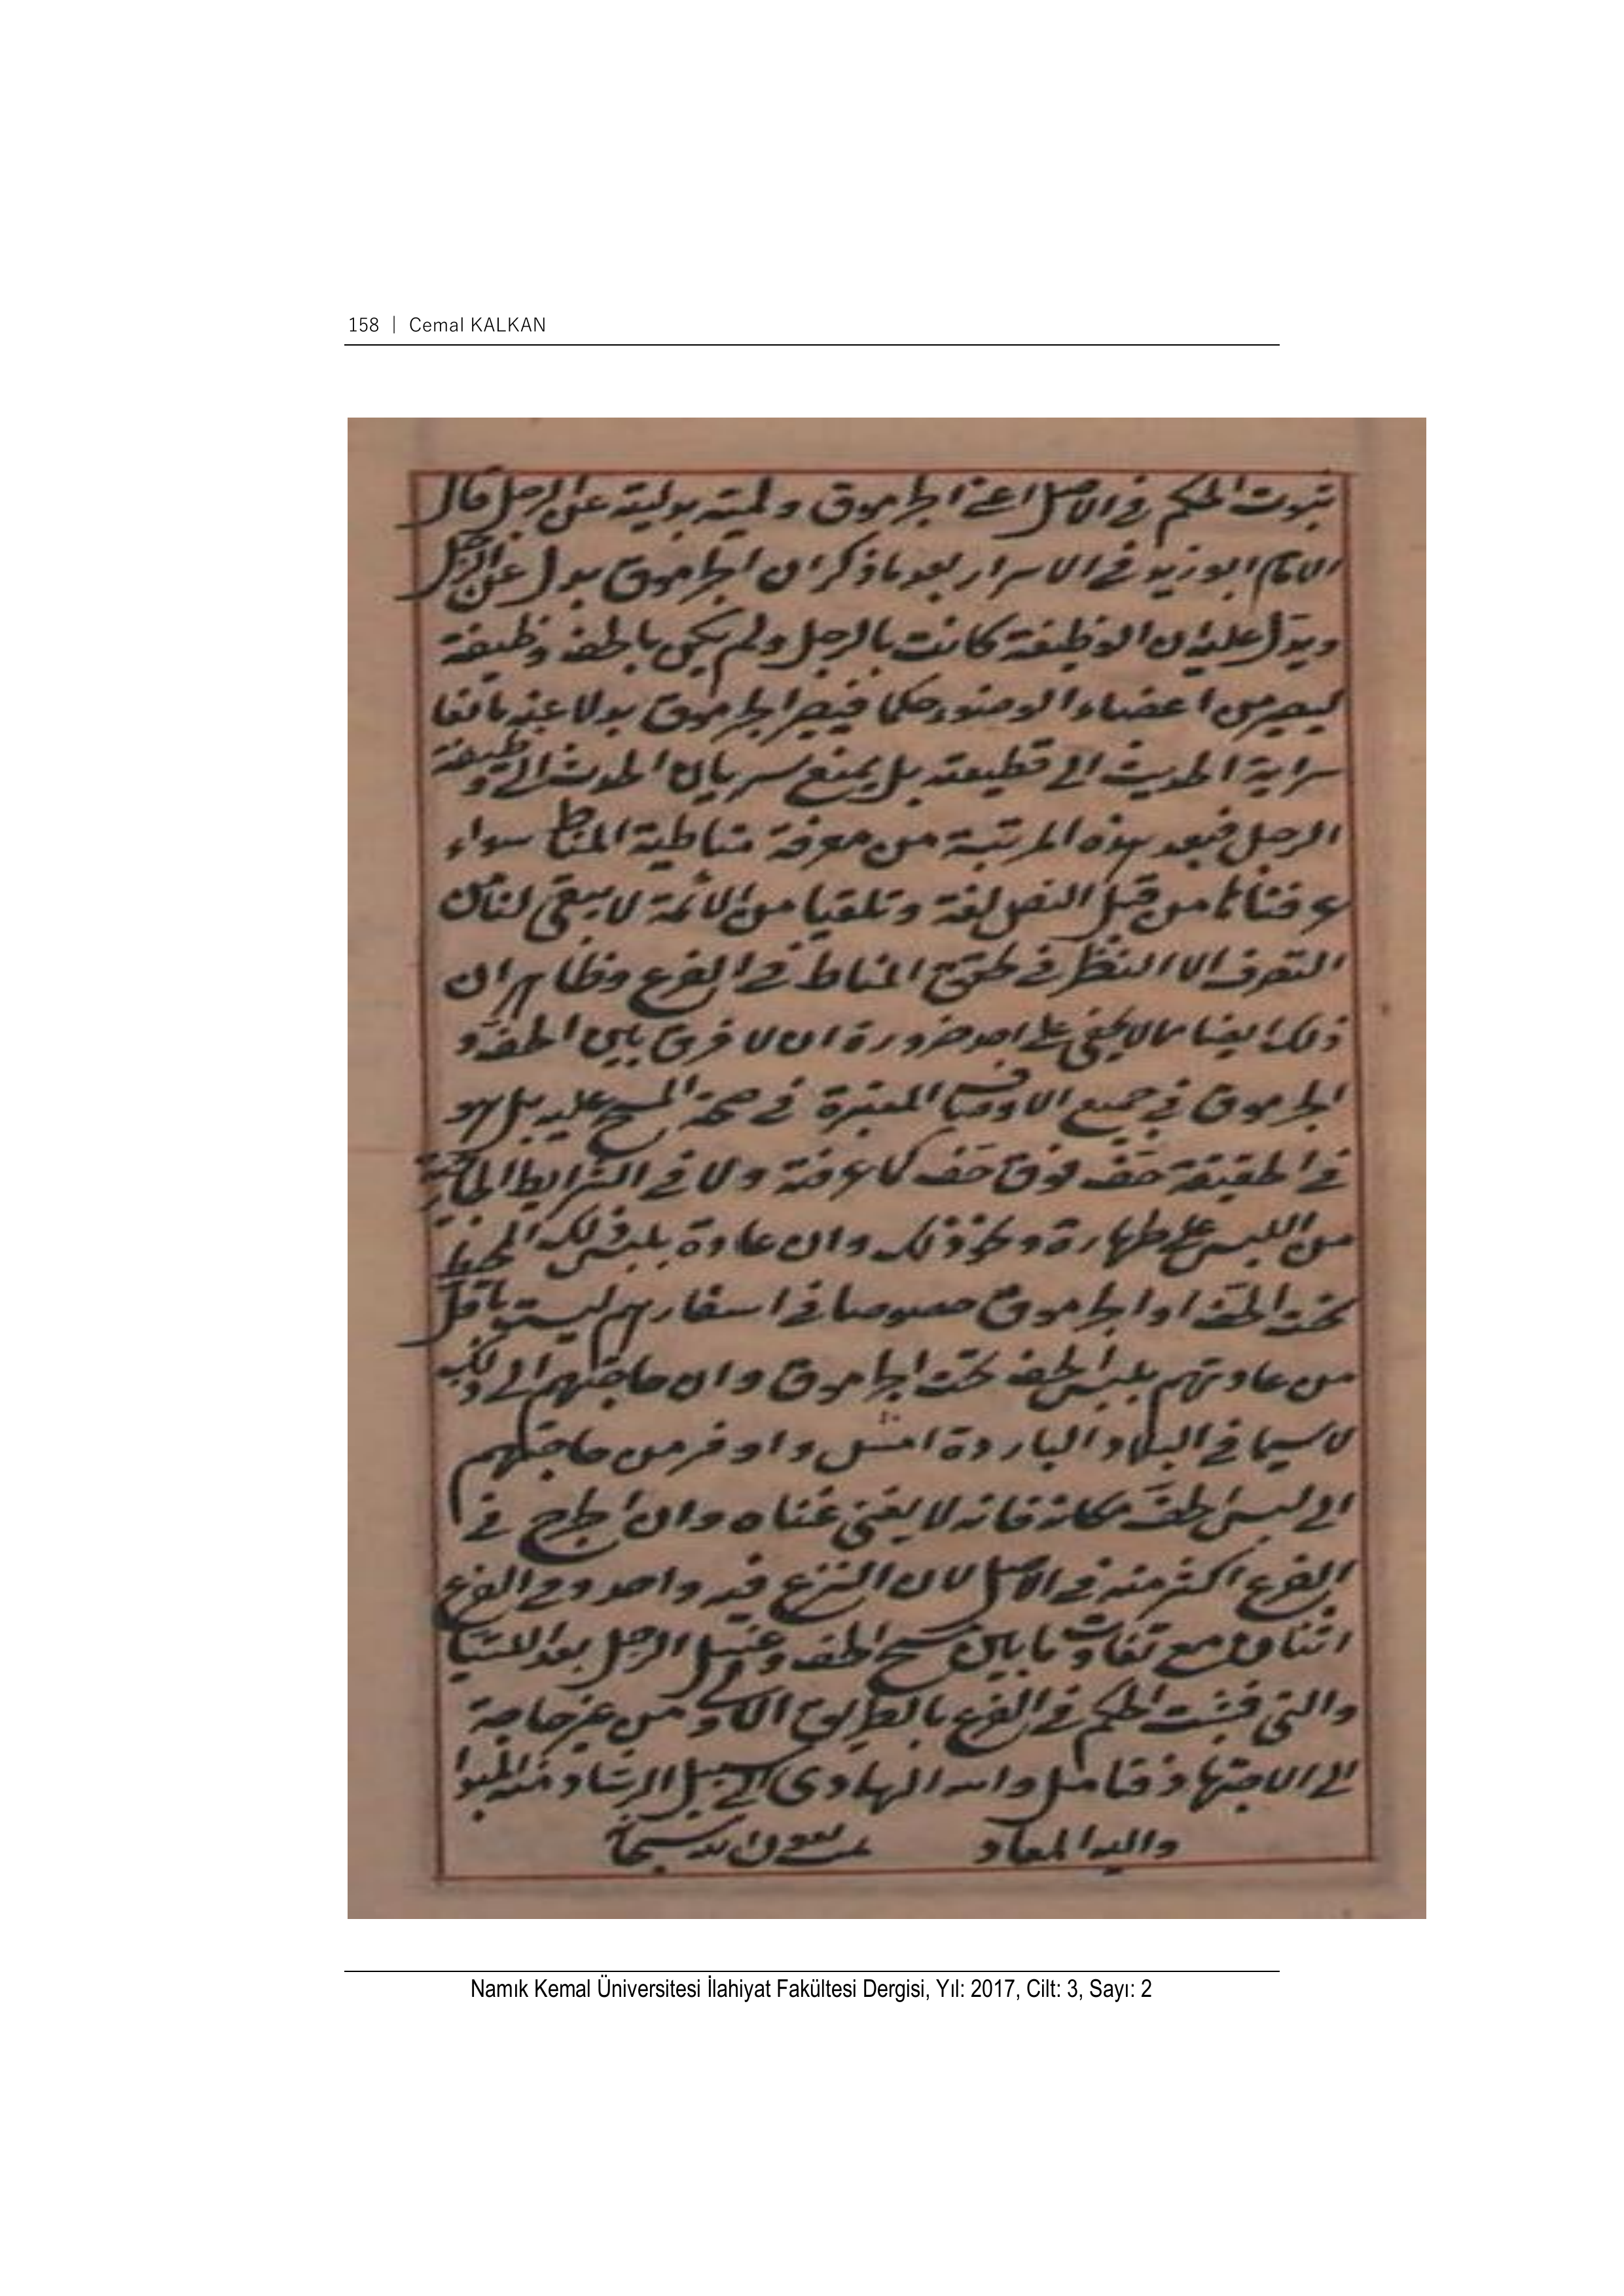 158 | Cemal KALKAN
ثبوت الحكم في الاصل اعني الجرموق بدلية عن الرجل قال
الامام ابو زيد في الاسرار بعد ما ذكر ان الجرموق بدل عن الرجل
ويدل عليه ان الوظيفة كانت بالرجل ولم يكن بالخف وظيفة
ليصير من اعضاء الوضوء حكما فيصير الجرموق بدلا عنه مانعا
سراية الحديث الى قطيعته بل يمنع سريان الحدث الى وظيفة
الرجل فبعد هذه المرتبة من معرفة مناطية المناط سواء
عرفناها من قبل النص لغة وتلقيا من الائمة لا يبقى لنا من
التصرف الا النظر في تحقيق المناط في الفرع وظاهر ان
ذلك ايضا مما لا يخفى على احد ضرورة ان لا فرق بين الخف و
الجرموق في جميع الاوصاف المعتبرة في صحة المسح عليه بل هو
في الحقيقة خف فوق خف كما عرفته ولا في الشرايط
من اللبس على طهارة ونحو ذلك وان عادة بلبس ذلك المخيط
تحت الخف او الجرموق خصوصا في اسفارهم ليست باقل
من عادتهم بلبس الخف تحت الجرموق وان حاجتهم الى ذلك
لا سيما في البلاد الباردة امس واوفر من حاجتهم
الى لبس الخف مكانه فانه لا يغني غناه وان الحرج في
الفرع اكثر منه في الاصل لان النزع فيه واحد وفي الفرع
اثنان مع تفاوت ما بين مسح الخف وغسل الرجل بعد اللتيا
والتي فثبت الحكم في الفرع بالطريق الاولى من غير حاجة
الى الاجتهاد فتامل والله الهادي الى سبيل الرشاد منه المبدا
واليه المعاد تمت بعون الله سبحانه
Namık Kemal Üniversitesi İlahiyat Fakültesi Dergisi, Yıl: 2017, Cilt: 3, Sayı: 2